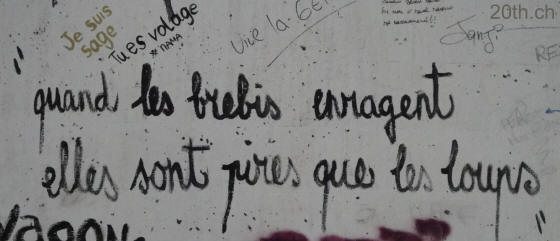 Je suis
sage
Tu es volage
* NAMA
Vive la
20th.ch
"quand les brebis enragent
elles sont pires que les loups"